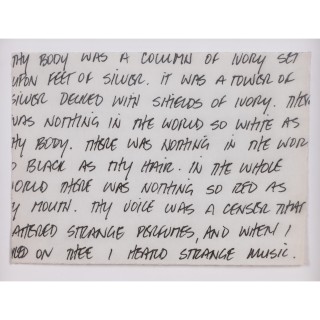 THY BODY WAS A COLUMN OF IVORY SET
UPON FEET OF SILVER. IT WAS A TOWER OF
SILVER DECKED WITH SHIELDS OF IVORY. THERE
WAS NOTHING IN THE WORLD SO WHITE AS
THY BODY. THERE WAS NOTHING IN THE WOR
O BLACK AS THY HAIR. IN THE WHOLE
WORLD THERE WAS NOTHING SO RED AS
Y MOUTH. THY VOICE WAS A CENSER THAT
ATTERED STRANGE PERFUMES, AND WHEN I
KED ON THEE I HEARD STRANGE MUSIC.